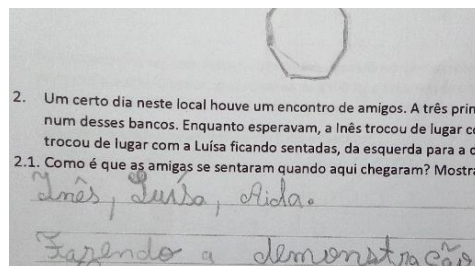 2. Um certo dia neste local houve um encontro de amigos. A três prin
num desses bancos. Enquanto esperavam, a Inês trocou de lugar co
trocou de lugar com a Luísa ficando sentadas, da esquerda para a d
2.1. Como é que as amigas se sentaram quando aqui chegaram? Mostra
Inês, Luísa, Aida.
Fazendo a demonstração